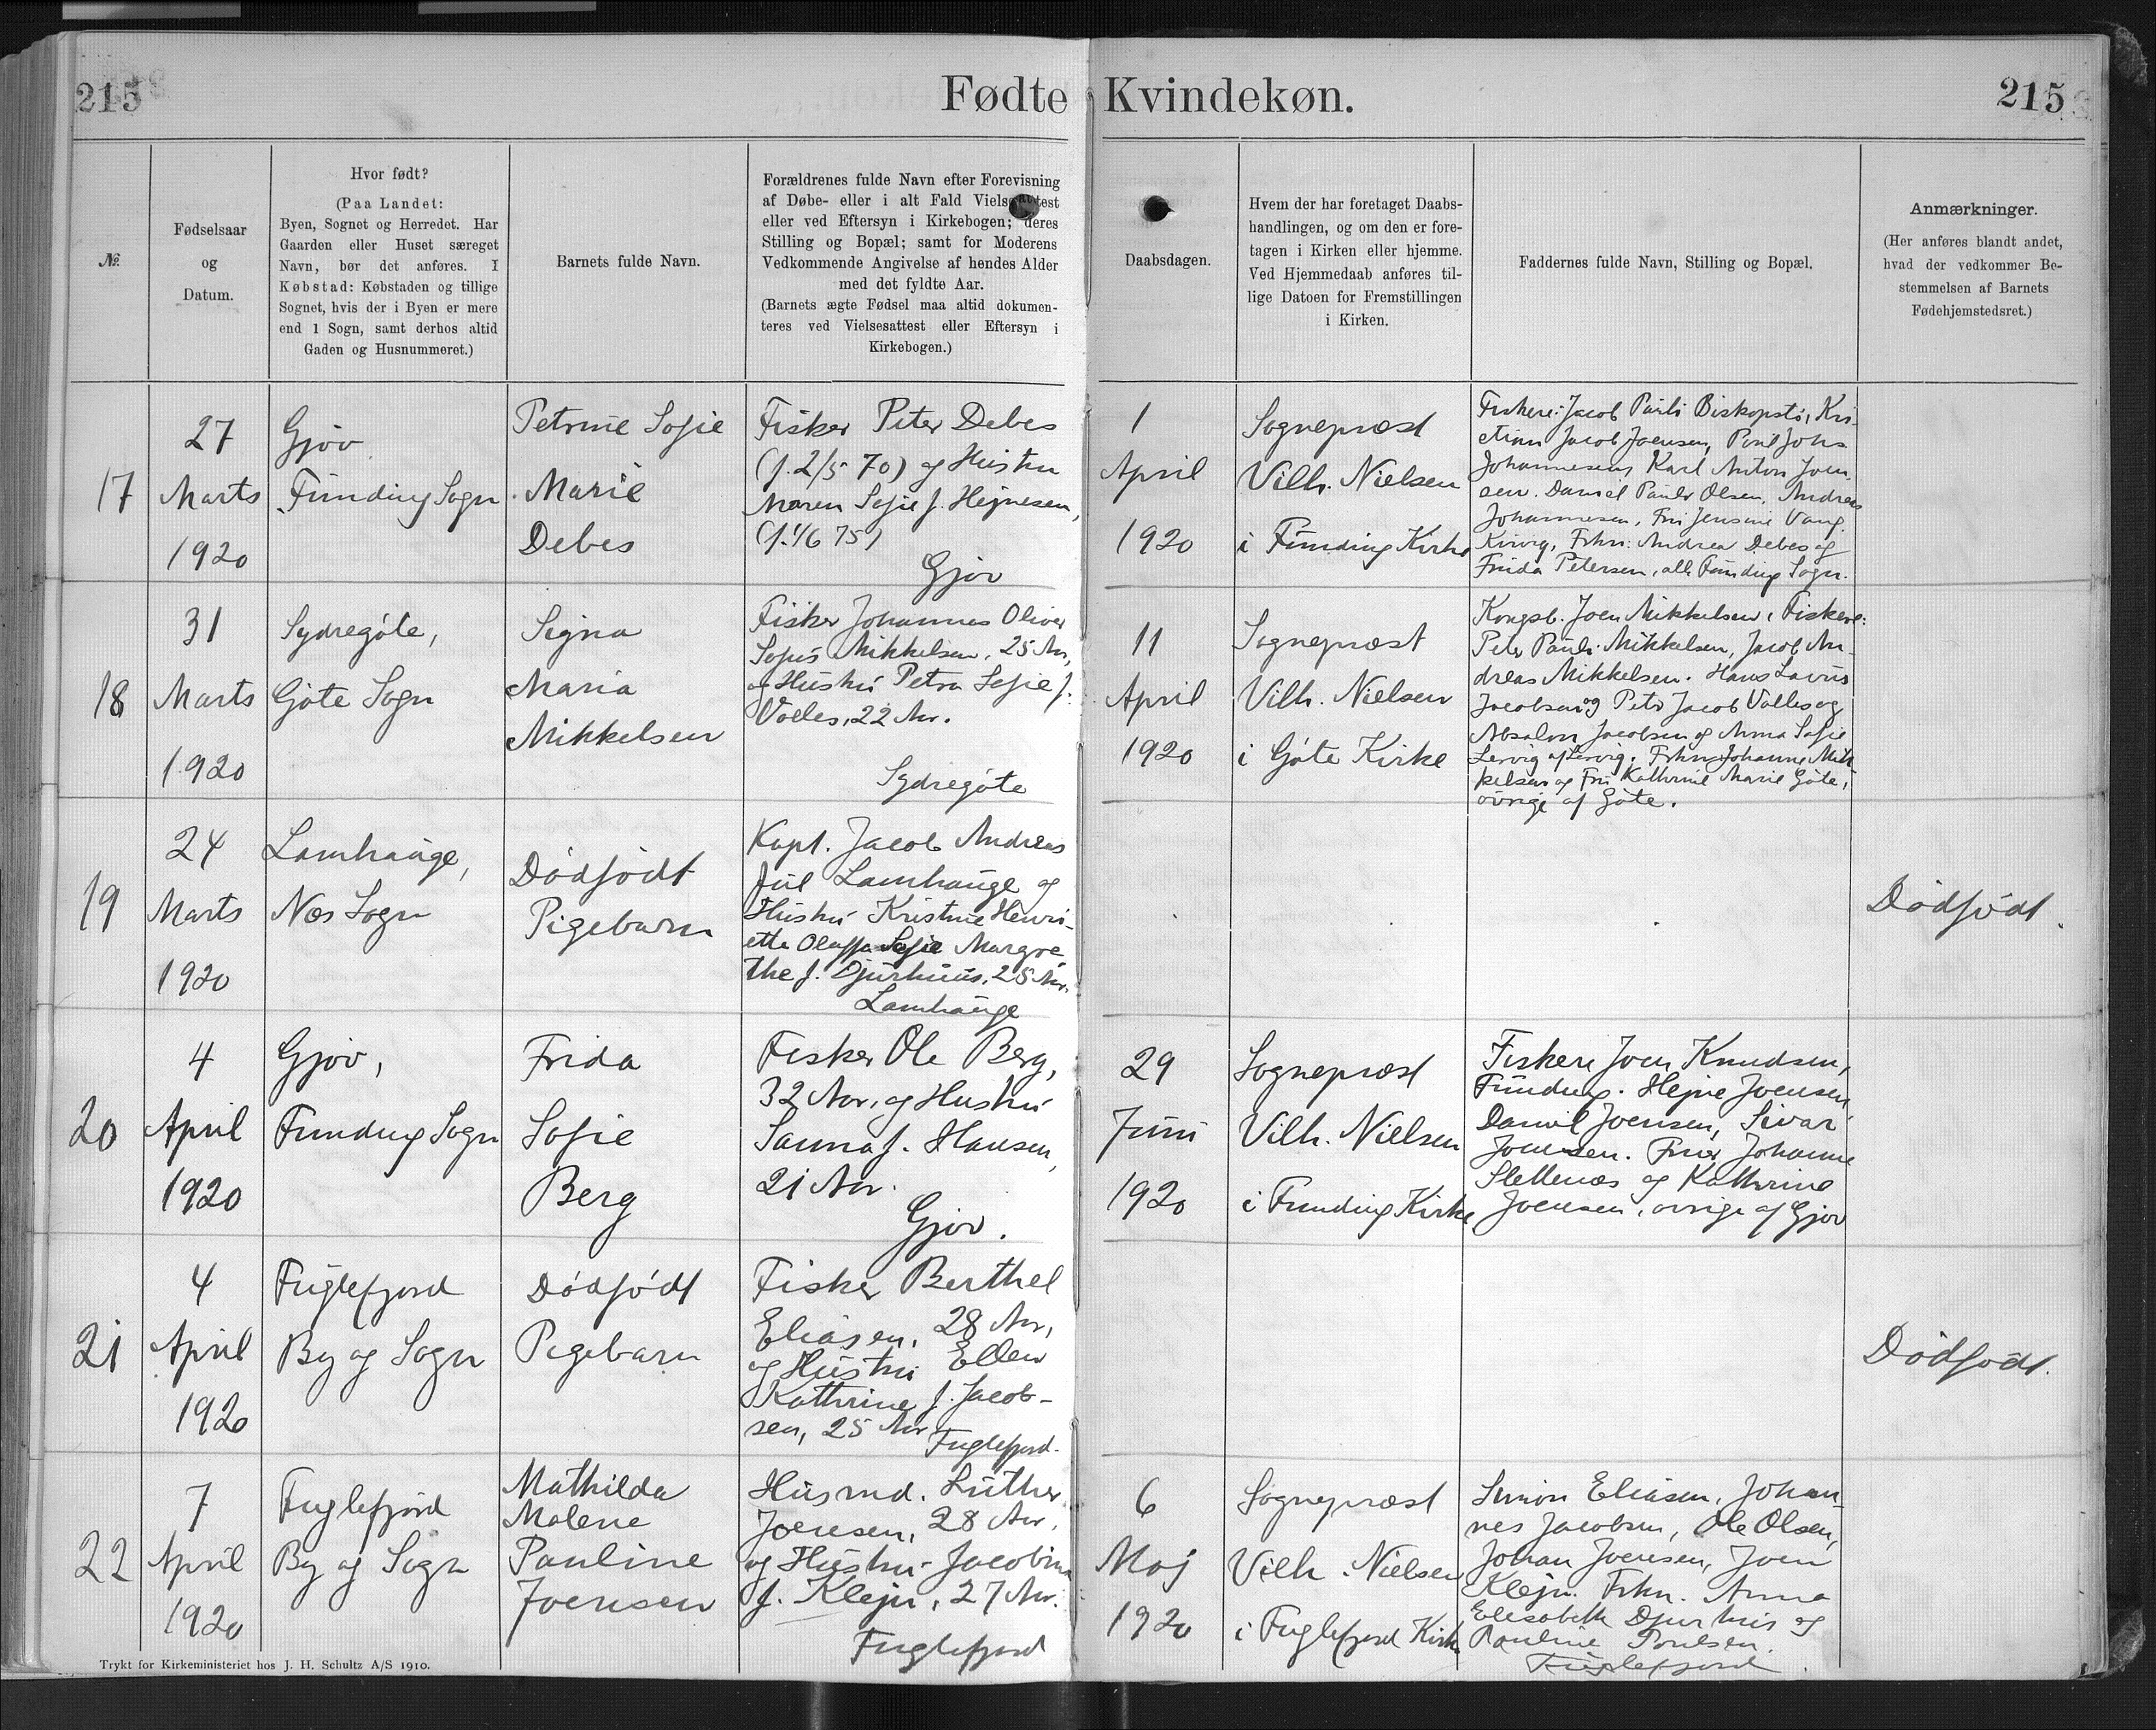 215
Fødte Kvindekøn.
215
№
Fødselsaar
og
Datum.
Hvor født?
(Paa Landet:
Byen, Sognet og Herredet. Har
Gaarden eller Huset særeget
Navn, bør det anføres. I
Købstad: Købstaden og tillige
Sognet, hvis der i Byen er mere
end 1 Sogn, samt derhos altid
Gaden og Husnummeret.)
Barnets fulde Navn.
Forældrenes fulde Navn efter Forevisning
af Døbe- eller i alt Fald Vielsesattest
eller ved Eftersyn i Kirkebogen; deres
Stilling og Bopæl; samt for Moderens
Vedkommende Angivelse af hendes Alder
med det fyldte Aar.
(Barnets ægte Fødsel maa altid dokumen-
teres ved Vielsesattest eller Eftersyn i
Kirkebogen.)
Daabsdagen.
Hvem der har foretaget Daabs-
handlingen, og om den er fore-
tagen i Kirken eller hjemme.
Ved Hjemmedaab anføres til-
lige Datoen for Fremstillingen
i Kirken.
Faddernes fulde Navn, Stilling og Bopæl.
Anmærkninger.
(Her anføres blandt andet,
hvad der vedkommer Be-
stemmelsen af Barnets
Fødehjemstedsret.)
17
27
Marts
1920
Gjóv
Funding Sogn
Petrine Sofie
Marie
Debes
Fisker Peter Debes
(f. 2/5 70) og Hustru
Maren Sofie f. Hejnesen,
(f. 1/6 75)
Gjóv
1
April
1920
Sognepræst
Vilh. Nielsen
i Funding Kirke
Fiskere: Jacob Pauli Biskopstó, Kri-
stian Jacob Joensen, Poul Johs.
Johannesen, Karl Anton Joen-
sen. Daniel Pauls Olsen, Andreas
Johannesen, Fru Jensine Vang.
Frkn: Andrea Debes og
Frida Petersen, alle Funding Sogn.
18
31
Marts
1920
Sydregóte,
Góte Sogn
Signa
Maria
Mikkelsen
Fisker Johannes Oliver
Sofus Mikkelsen, 25 Aar,
og Hustru Petra Sofie f.
Volles, 22 Aar.
Sydregóte
11
April
1920
Sognepræst
Vilh. Nielsen
i Góte Kirke
Kongsb. Joen Mikkelsen, Fiskere:
Peter Pauli Mikkelsen, Jacob An-
dreas Mikkelsen. Hans Lavus
Jacobsen og Peter Jacob Volles og
Absalon Jacobsen og Anna Sofie
Lervig af Lervig. Frkn Johanne Mik-
kelsen og Fru Kathrine Marie Góte,
óvrige af Góte.
19
24
Marts
1920
Lamhauge,
Næs Sogn
Dódfódt
Pigebarn
Kapt. Jacob Andreas
Juul Lamhauge og
Hustru Kristine Henri-
ette Olaffa Sofie Margre-
the f. Djurhuus, 28 Aar.
Lamhauge
Dódfódt.
20
4
April
1920
Gjóv,
Funding Sogn
Frida
Sofie
Berg
Fisker Ole Berg,
32 Aar, og Hustru
Sanna f. Hansen,
21 Aar.
Gjóv.
29
Juni
1920
Sognepræst
Vilh. Nielsen
i Funding Kirke
Fiskere Joen Knudsen,
Funding. Hejne Joensen
Daniel Joensen, Sivar
Joensen. Fruer Johanne
Slettenæs og Kathrine
Joensen, óvrige af Gjóv
21
4
April
1920
Fuglefjord
By og Sogn
Dódfódt
Pigebarn
Fisker Berthel
Eliasen, 28 Aar,
og Hustru Ellen
Kathrine f. Jacob-
sen, 25 Aar
Fuglefjord.
Dódfódt.
22
7
April
1920
Fuglefjord
By og Sogn
Mathilda
Malene
Pauline
Joensen
Husmd. Luther
Joensen, 28 Aar,
og Hustru Jacobina
f. Klejn, 27 Aar.
Fuglefjord
6
Maj
1920
Sognepræst
Vilh. Nielsen
i Fuglefjord Kirke
Simon Eliasen, Johan-
nes Jacobsen, Ole Olsen,
Johan Joensen, Joen
Klejn. Frkn. Anna
Elisabeth Djurhuus og
Pauline Poulsen.
Fuglefjord.
Trykt for Kirkeministeriet hos J. H. Schultz A/S 1910.